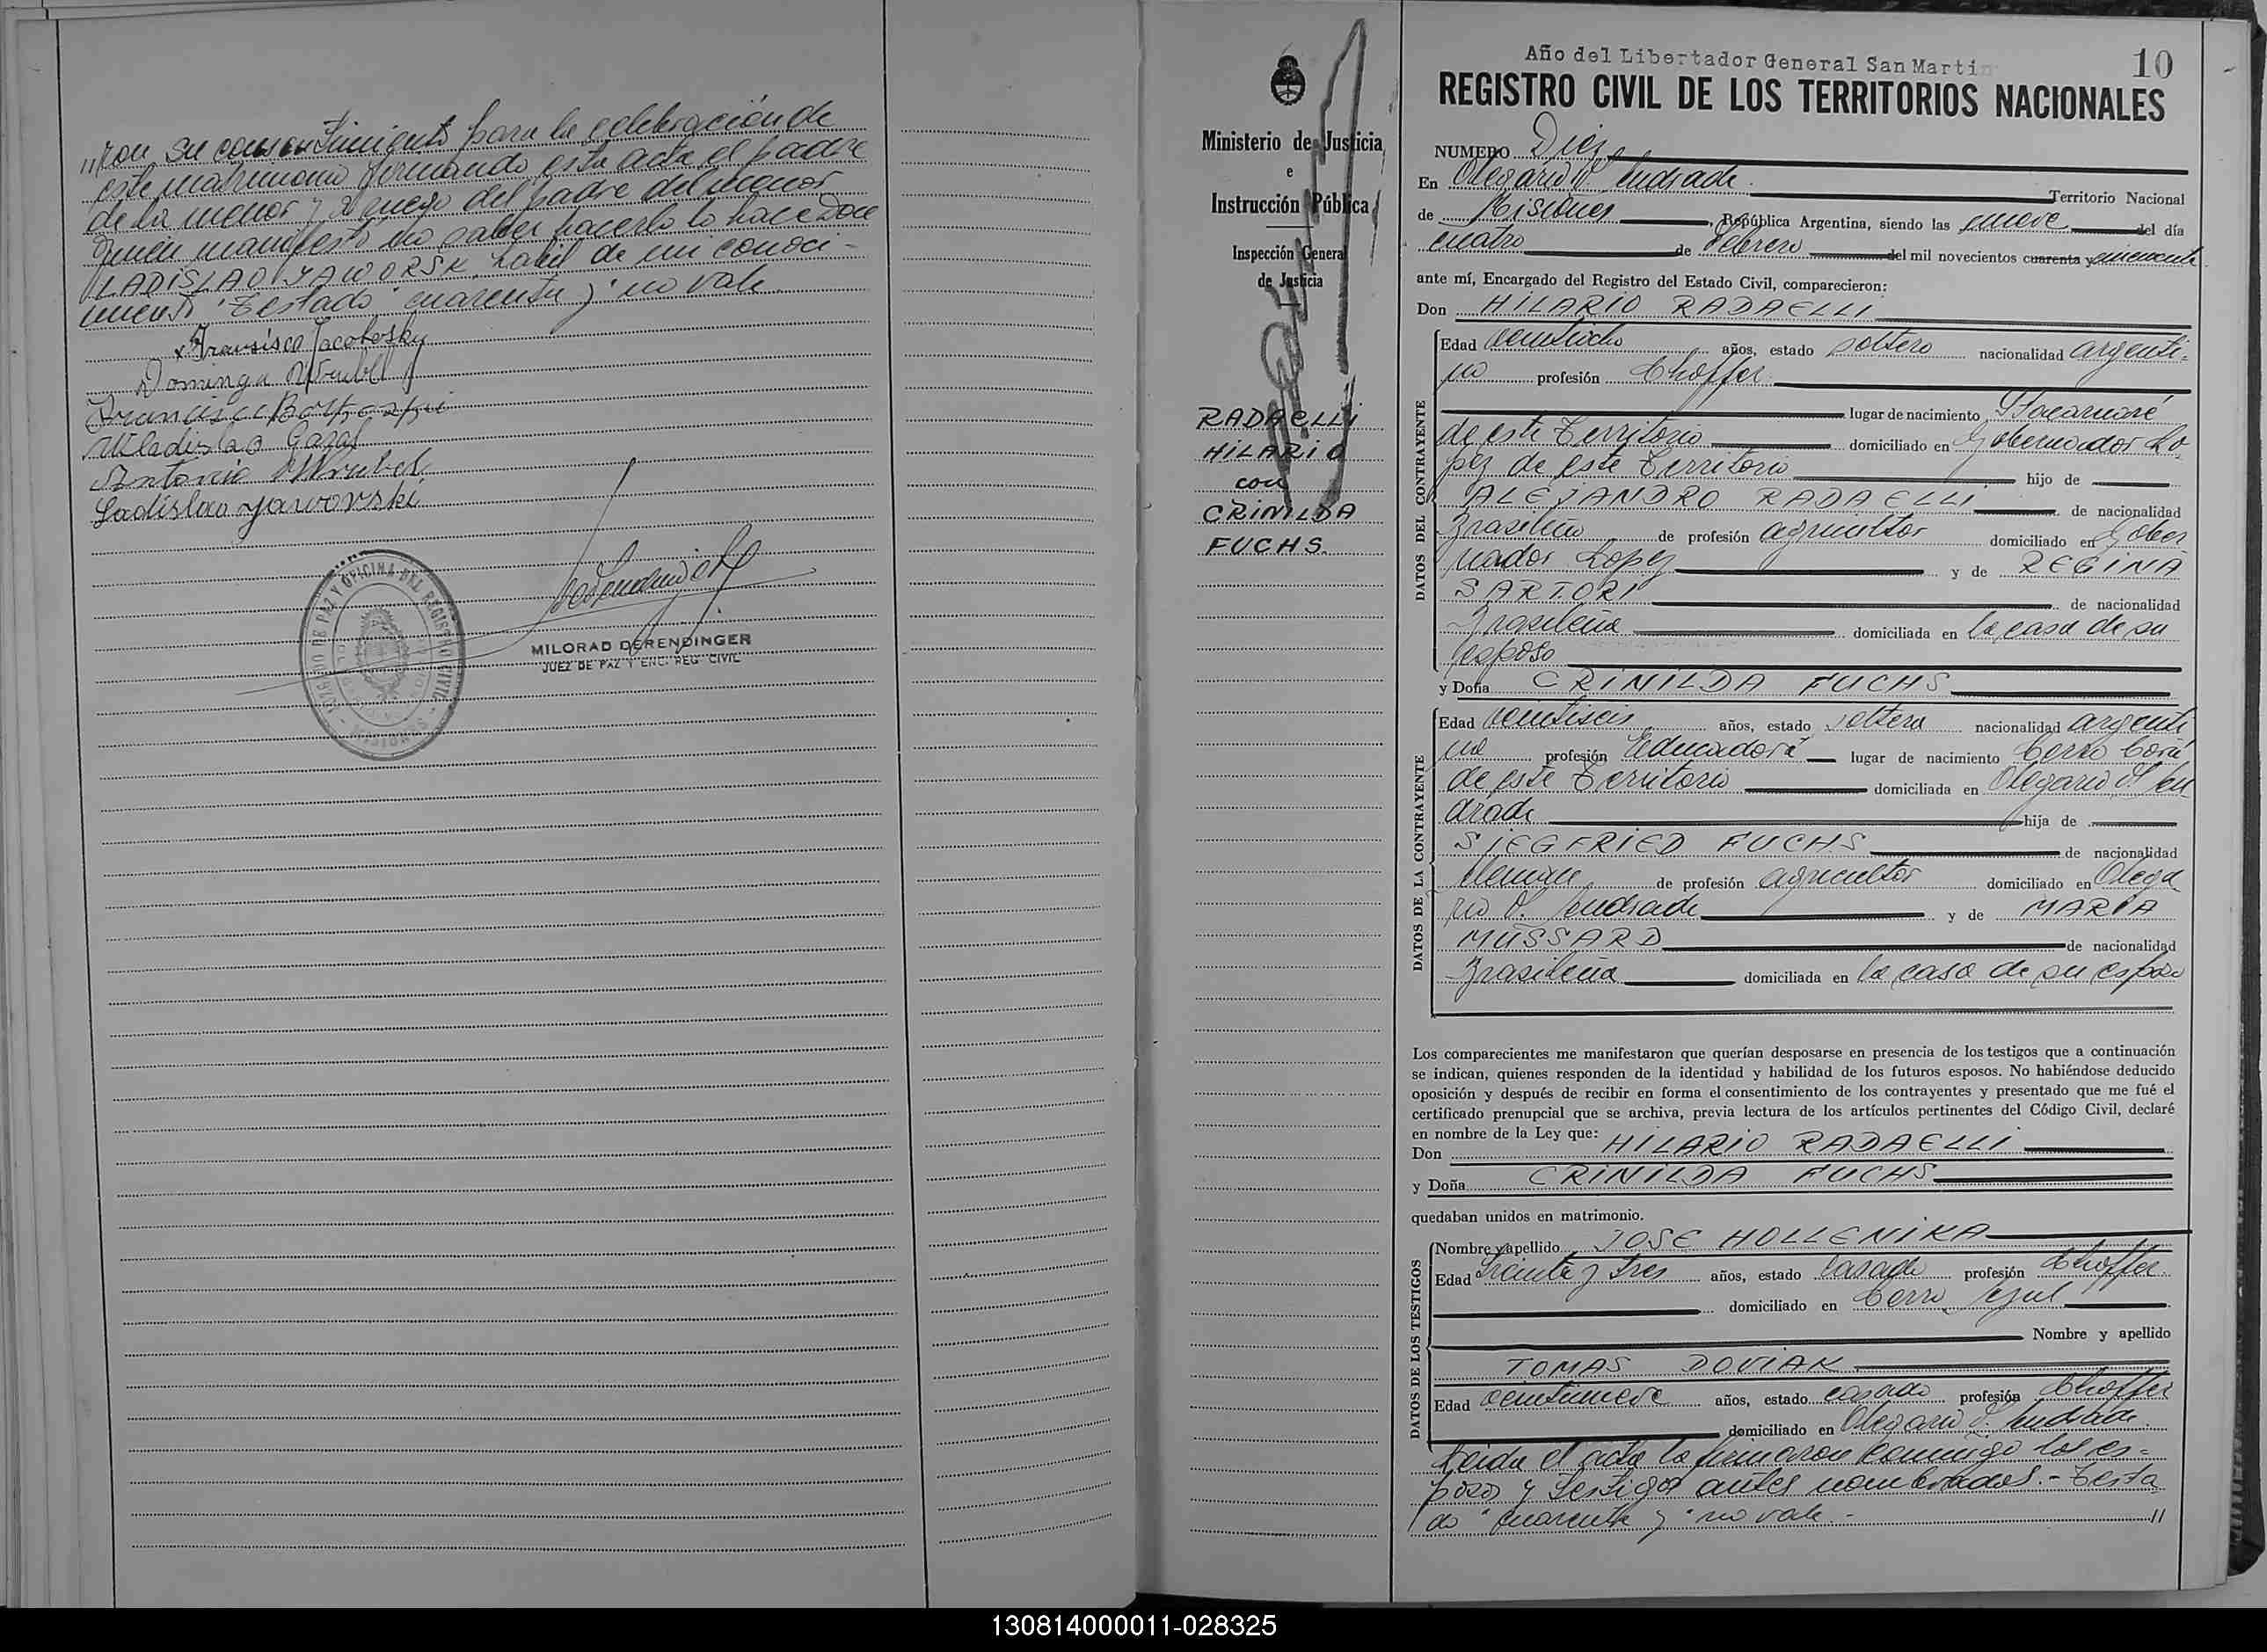 "ron su consentimiento para la celebración de
este matrimonio firmando esta acta el padre
de la menor y a ruego del padre del menor
quien manifestó no saber hacerlo lo hace Don
LADISLAO JAWORSK, habil de mi conoci-
miento Testado "cuarenta y" no vale.
Fransisco Jacobosky
Dominga Wrubel
Uladislao Gazal
Antonio Wrubel
Ladislao Jaworski
MILORAD DERENDINGER
JUEZ DE PAZ Y ENC. REG. CIVIL
Ministerio de Justicia
e
Instrucción Pública
Inspección General
de Justicia
RADAELLI
HILARIO
con
CRINILDA
FUCHS.
Año del Libertador General San Martin
10
REGISTRO CIVIL DE LOS TERRITORIOS NACIONALES
NUMERO Diez
En Olegario V. Andrade Territorio Nacional
de Misiones, República Argentina, siendo las nueve del día
cuatro de Febrero del mil novecientos cuarenta y cincuenta
ante mí, Encargado del Registro del Estado Civil, comparecieron:
Don HILARIO RADAELLI
DATOS DEL CONTRAYENTE
Edad veintiocho años, estado soltero nacionalidad argenti-
no profesión Choffer
lugar de nacimiento Ytacaruaré
de este Territorio domiciliado en Gobernador Lo
pez de este Territorio hijo de
ALEJANDRO RADAELLI de nacionalidad
Brasileño de profesión agricultor domiciliado en Gober
nador Lopez y de REGINA
SARTORI de nacionalidad
Brasileña domiciliada en la casa de su
esposo
y Doña CRINILDA FUCHS
DATOS DE LA CONTRAYENTE
Edad veintiseis años, estado soltera nacionalidad argenti
na profesión Educadora lugar de nacimiento Cerro Corá
de este Territorio domiciliada en Olegario V. An
drade hija de
SIEGFRIED FUCHS de nacionalidad
Aleman de profesión agricultor domiciliado en Olega
rio V. Andrade y de MARÍA
MUSSARD de nacionalidad
Brasileña domiciliada en la casa de su esposo
Los comparecientes me manifestaron que querían desposarse en presencia de los testigos que a continuación
se indican, quienes responden de la identidad y habilidad de los futuros esposos. No habiéndose deducido
oposición y después de recibir en forma el consentimiento de los contrayentes y presentado que me fué el
certificado prenupcial que se archiva, previa lectura de los artículos pertinentes del Código Civil, declaré
en nombre de la Ley que:
Don HILARIO RADAELLI
y Doña CRINILDA FUCHS
quedaban unidos en matrimonio.
DATOS DE LOS TESTIGOS
Nombre y apellido JOSE HOLLENIKA
Edad treinta y tres años, estado Casado profesión Choffer
domiciliado en Cerro Azul
Nombre y apellido
TOMAS DOVIAK
Edad veintinueve años, estado casado profesión Choffer
domiciliado en Olegario V. Andrade.
Leida el acta la firmaron conmigo los es-
posos y testigos antes nombrados.- Testa
do "cuarenta y" no vale.- "
130814000011-028325